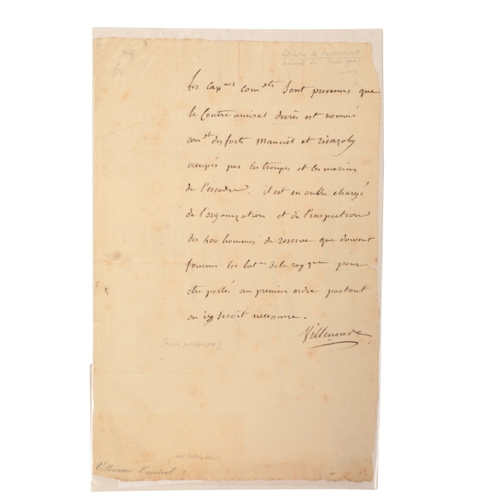 Les capnes comdts sont prévenus que
le Contre amiral decrès est nommé
comdt des forts manoël et ricazoly
occupés par les troupes et les marins
de l'escadre. il est en outre chargé
de l'organization et de l'inspection
des 400 hommes de reserve que doivent
fournir les batns de la repque pour
etre portés au premier ordre partout
ou seroit necessaire.
Villeneuve
Villeneuve l'amiral